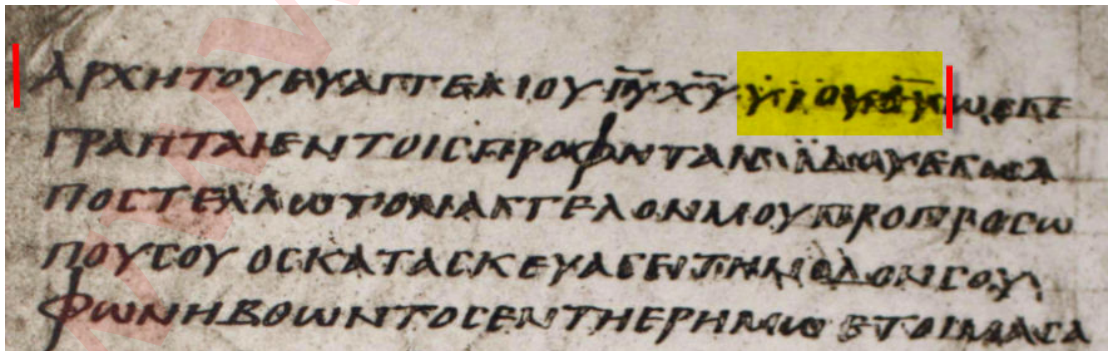 ΑΡΧΗΤΟΥΕΥΑΓΓΕΛΙΟΥΙ̅Υ̅Χ̅Υ̅ΥΪΟΥΘ̅Υ̅ΩϹΓΕ
ΓΡΑΠΤΑΙΕΝΤΟΙϹΠΡΟΦΗΤΑΙϹΪΔΟΥΕΓΩΑ
ΠΟϹΤΕΛΛΩΤΟΝΑΓΓΕΛΟΝΜΟΥΠΡΟΠΡΟϹΩ
ΠΟΥϹΟΥΟϹΚΑΤΑϹΚΕΥΑϹΕΙΤΗΝΟΔΟΝϹΟΥ
ΦΩΝΗΒΟΩΝΤΟϹΕΝΤΗΕΡΗΜΩΕΤΟΙΜΑϹΑ